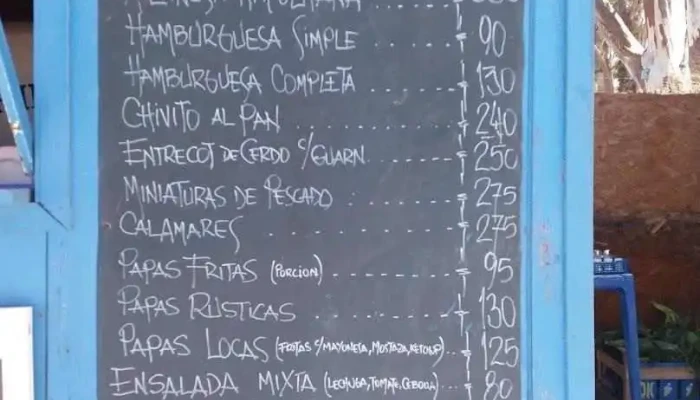 NAPOLITANA
HAMBURGUESA SIMPLE ...... $ 90
HAMBURGUESA COMPLETA ....... $ 130
CHIVITO AL PAN ............ $ 240
ENTRECOT DE CERDO C/GUARN. ........ $ 250
MINIATURAS DE PESCADO ......... $ 275
CALAMARES ............... $ 275
PAPAS FRITAS (PORCION) ......... $ 95
PAPAS RUSTICAS ............ $ 130
PAPAS LOCAS (FRITAS C/MAYONESA, MOSTAZA, KETCHUP) ... $ 125
ENSALADA MIXTA (LECHUGA, TOMATE, CEBOLLA) ... $ 80